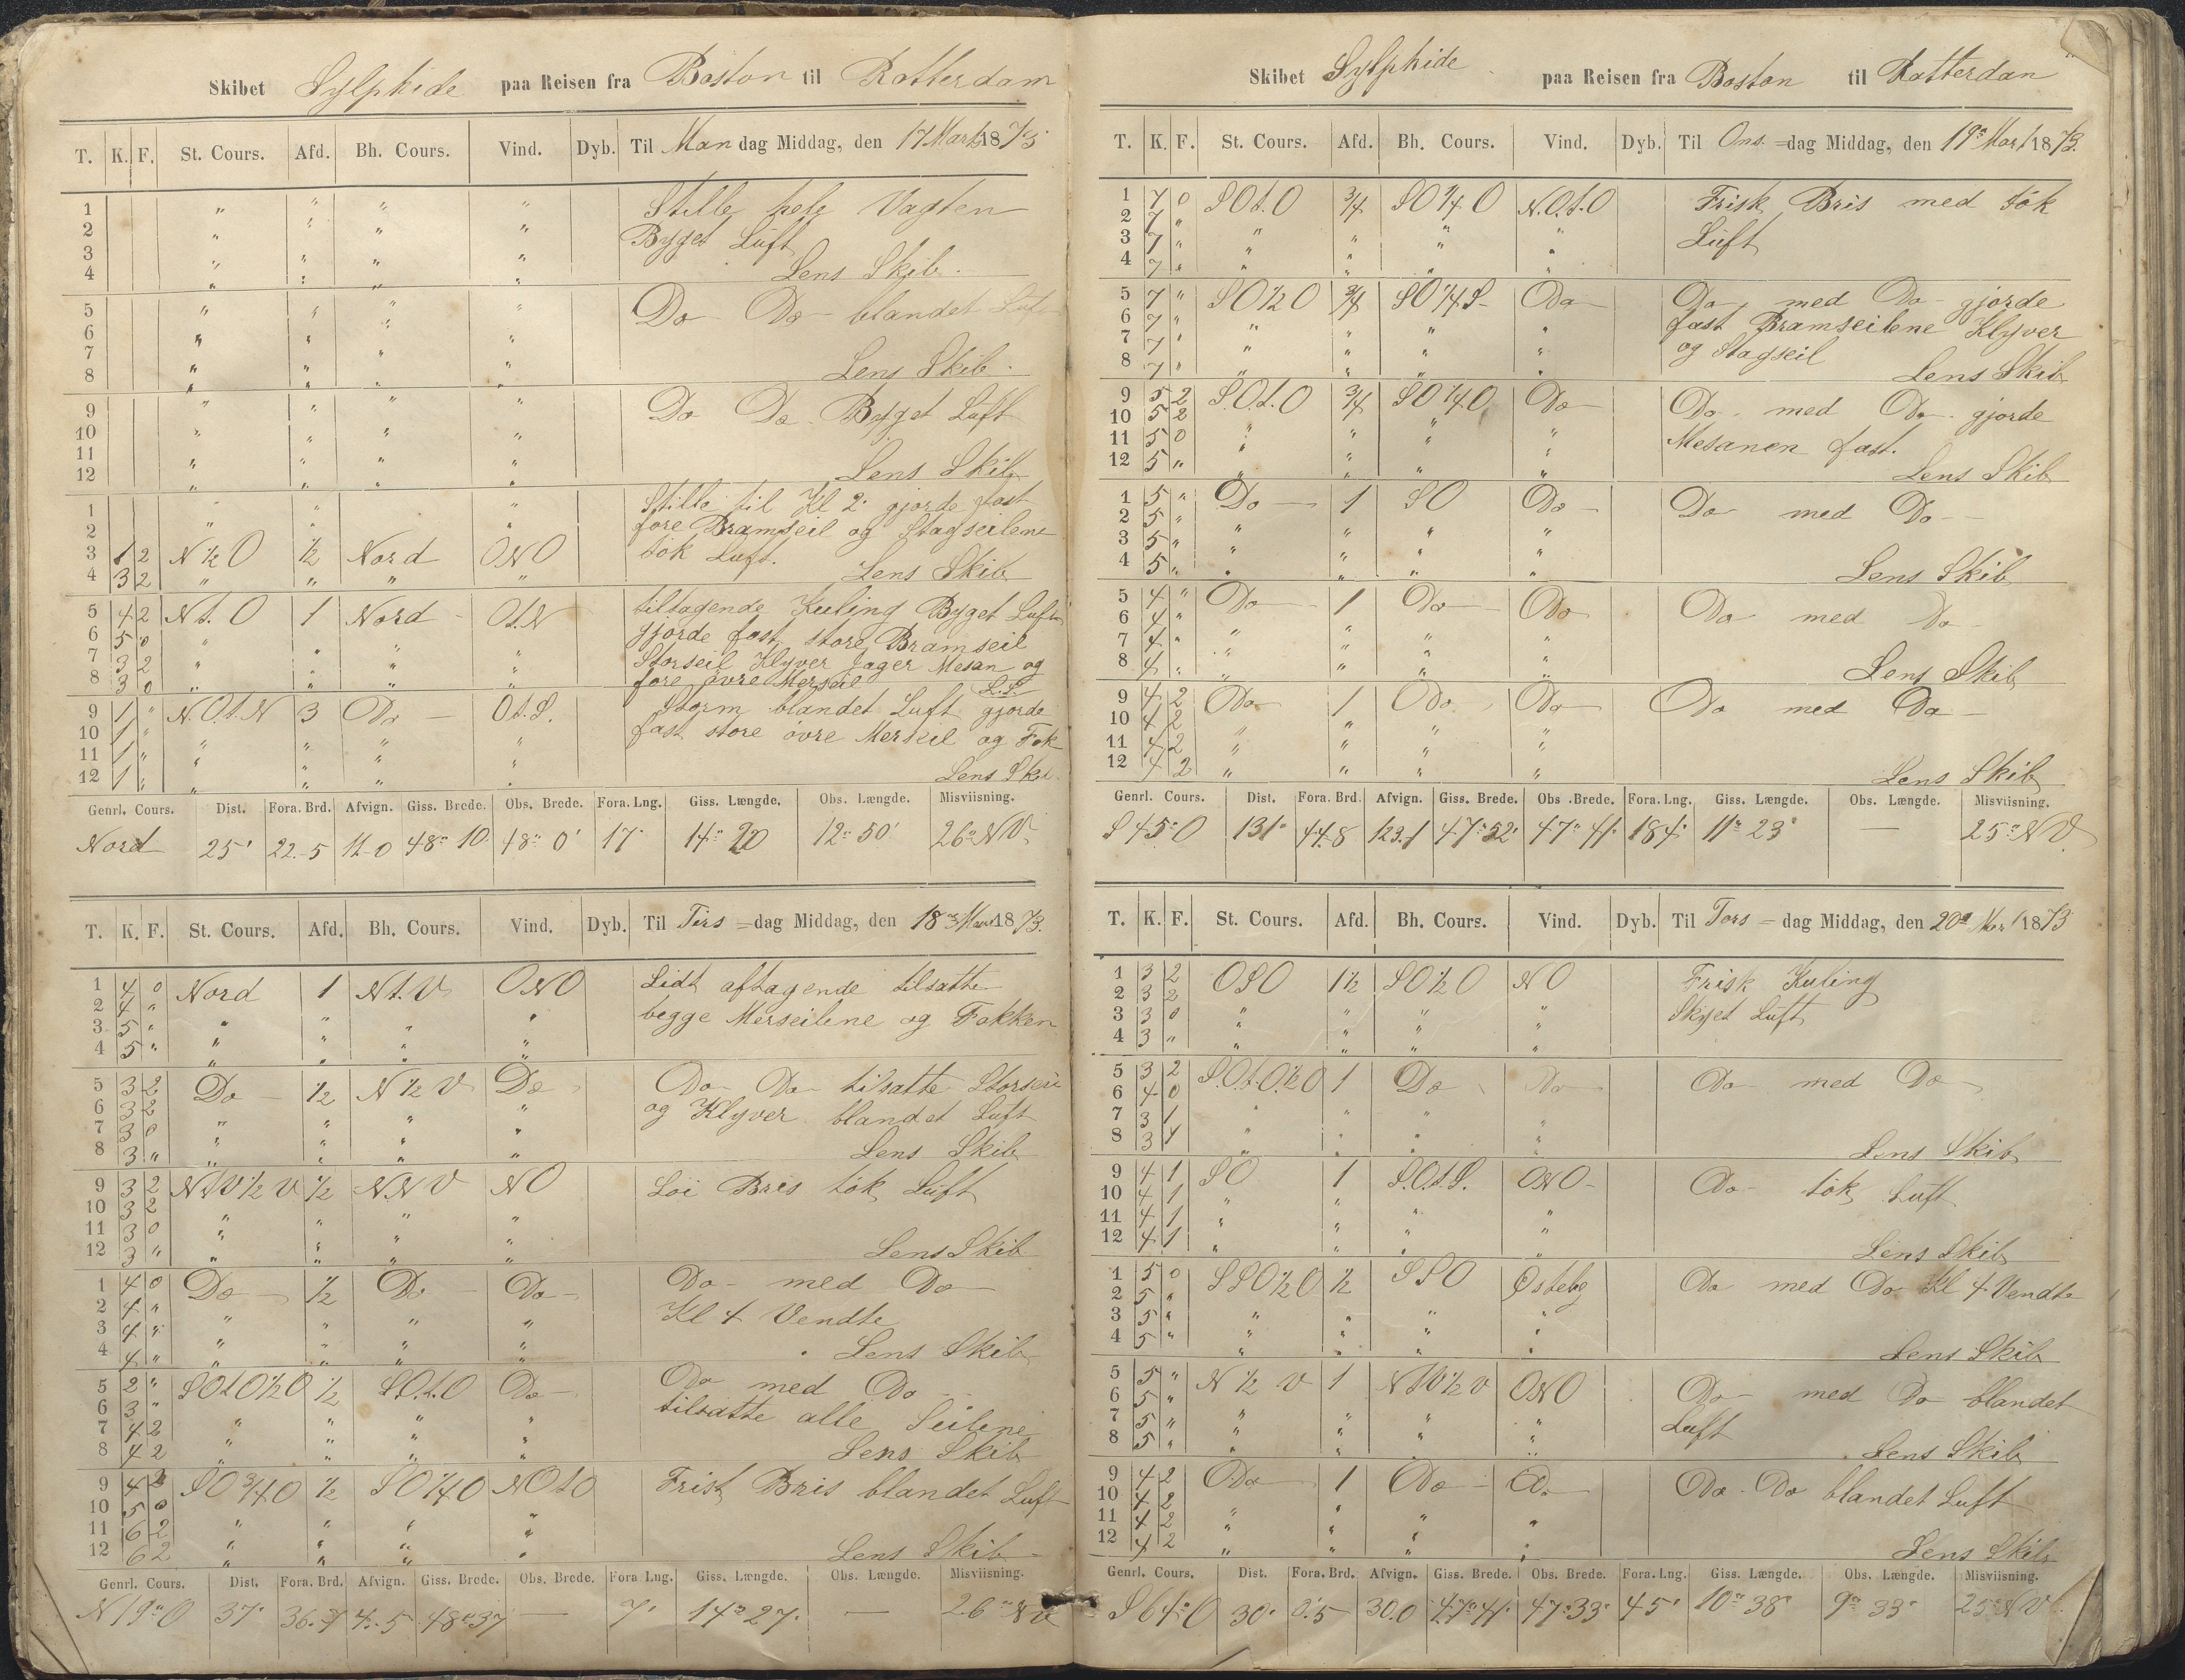 Skibet Sylphide paa Reisen fra Boston til Rotterdam
T. K. F. St. Cours. Afd. Bh. Cours. Vind. Dyb. Til Man dag Middag, den 17 Mart 1873
1 " " " " Stille hele Vagten
2 " " " " Byget Luft
3 " " " "
4 " " " " Lens Skib
5 " " " " Do Do blandet Luft
6 " " " "
7 " " " "
8 " " " " Lens Skib
9 " " " " Do Do Byget Luft
10 " " " "
11 " " " "
12 " " " " Lens Skib
1 " " " Stille til Kl 2 gjorde fast
2 " " " fore Bramseil og Stagseilene
3 1 2 N ½ O ½ Nord ONO tök Luft.
4 3 2 " " " " Lens Skib
5 4 2 N t. O 1 Nord O t. N tiltagende Kuling Byget Luft
6 5 0 " " " " gjorde fast store Bramseil
7 3 2 " " " " Storseil Klyver Jager Mesan og
8 3 0 " " " " fore övre Merseil L.S.
9 1 " N.O.t.N 3 Do O.t.S. Storm blandet Luft gjorde
10 1 " " " " " fast store övre Merseil og Fok
11 1 " " " " "
12 1 " " " " " Lens Skib
Genrl. Cours. Dist. Fora. Brd. Afvign. Giss. Brede. Obs. Brede. Fora. Lng. Giss. Længde. Obs. Længde. Misviisning.
Nord 25' 22-5 11-0 48° 10 48° 0' 17' 14° 20 12° 50' 26° NV
T. K. F. St. Cours. Afd. Bh. Cours. Vind. Dyb. Til Tirs =dag Middag, den 18 Mart 1873.
1 4 0 Nord 1 N t. V ONO Lidt aftagende tilsatte
2 4 " " " " " begge Merseilene og Fokken
3 5 " " " " "
4 5 " " " " "
5 3 2 Do ½ N ½ V Do Do Do tilsatte Storseil
6 3 2 " " " " og Klyver blandet Luft
7 3 0 " " " "
8 3 " " " " " Lens Skib
9 3 2 NtV½V ½ NNV NO Löi Bris tök Luft
10 3 2 " " " "
11 3 0 " " " "
12 3 " " " " " Lens Skib
1 4 0 Do ½ Do Do Do med Do
2 4 " " " " " Kl 4 Vendte
3 4 " " " " "
4 4 " " " " " Lens Skib
5 2 " SOtO½O ½ SO.t.O Do Do med Do
6 3 " " " " " tilsatte alle Seilene
7 4 2 " " " "
8 4 2 " " " " Lens Skib
9 4 2 SO ¾ O ½ SO ¼ O NOtO Frisk Bris blandet Luft
10 5 0 " " " "
11 6 2 " " " "
12 6 2 " " " " Lens Skib
Genrl. Cours. Dist. Fora. Brd. Afvign. Giss. Brede. Obs. Brede. Fora Lng. Giss. Længde. Obs. Længde. Misviisning.
N 19° O 37' 36.7 4.5 48° 37 — 7' 14° 27' — 26° NV
Skibet Sylphide paa Reisen fra Boston til Rotterdan
T. K. F. St. Cours. Afd. Bh. Cours. Vind. Dyb. Til Ons. =dag Middag, den 19° Mart 1873.
1 7 0 SOt.O ¾ SO ¼ O N.O.t.O Frisk Bris med tök
2 7 " " " " " Luft
3 7 " " " " "
4 7 " " " " "
5 7 " SO ½ O ¾ SO ¼ S Do Do med Do gjorde
6 7 " " " " " fast Bramseilene Klyver
7 7 " " " " " og Stagseil
8 7 " " " " " Lens Skib
9 5 2 S.O.t.O ¾ SO ¼ O Do Do med Do gjorde
10 5 2 " " " " Mesanen fast.
11 5 0 " " " "
12 5 " " " " " Lens Skib
1 5 " Do 1 SO Do Do med Do
2 5 " " " " "
3 5 " " " " "
4 5 " " " " " Lens Skib
5 4 " Do 1 Do Do Do med Do
6 4 " " " " "
7 4 " " " " "
8 4 " " " " " Lens Skib
9 4 2 Do 1 Do Do Do med Do
10 4 2 " " " "
11 4 2 " " " "
12 4 2 " " " " Lens Skib
Genrl. Cours. Dist. Fora. Brd. Afvign. Giss. Brede. Obs .Brede. Fora. Lng. Giss. Længde. Obs. Længde. Misviisning.
S 45° O 131' 44.8 123.1 47° 52' 47° 41' 184' 11° 23' — 25° NV.
T. K. F. St. Cours. Afd. Bh. Cours. Vind. Dyb. Til Tors =dag Middag, den 20° Mar 1873
1 3 2 OSO 1½ SO ½ O NO Frisk Kuling
2 3 2 Skyet Luft
3 3 0 " " " "
4 3 " " " " "
5 3 2 S.O.t.O.½O 1 Do Do Do med Do
6 4 0
7 3 1 " " " "
8 3 1 " " " " Lens Skib
9 4 1 SO 1 S.O.t.S. ONO Do tök Luft
10 4 1 " " " "
11 4 1 " " " "
12 4 1 " " " " Lens Skib
1 5 0 SSO½O ½ SSO Östelig Do med Do Kl 4 Vendte
2 5 "
3 5 " " " " "
4 5 " " " " " Lens Skib
5 5 " N ½ V 1 NtV½V ONO Do med Do blandet
6 5 " Luft
7 5 " " " " "
8 5 " " " " " Lens Skib
9 4 2 Do 1 Do Do Do Do blandet Luft
10 4 2
11 4 2 " " " "
12 4 2 " " " " Lens Skib
Genrl. Cours. Dist. Fora. Brd. Afvign. Giss. Brede. Obs. Brede. Fora. Lng. Giss. Længde. Obs. Længde. Misviisning.
S 64° O 30' 0.5 30.0 47° 41' 47° 33' 45' 10° 38' 9° 33' 25° NV